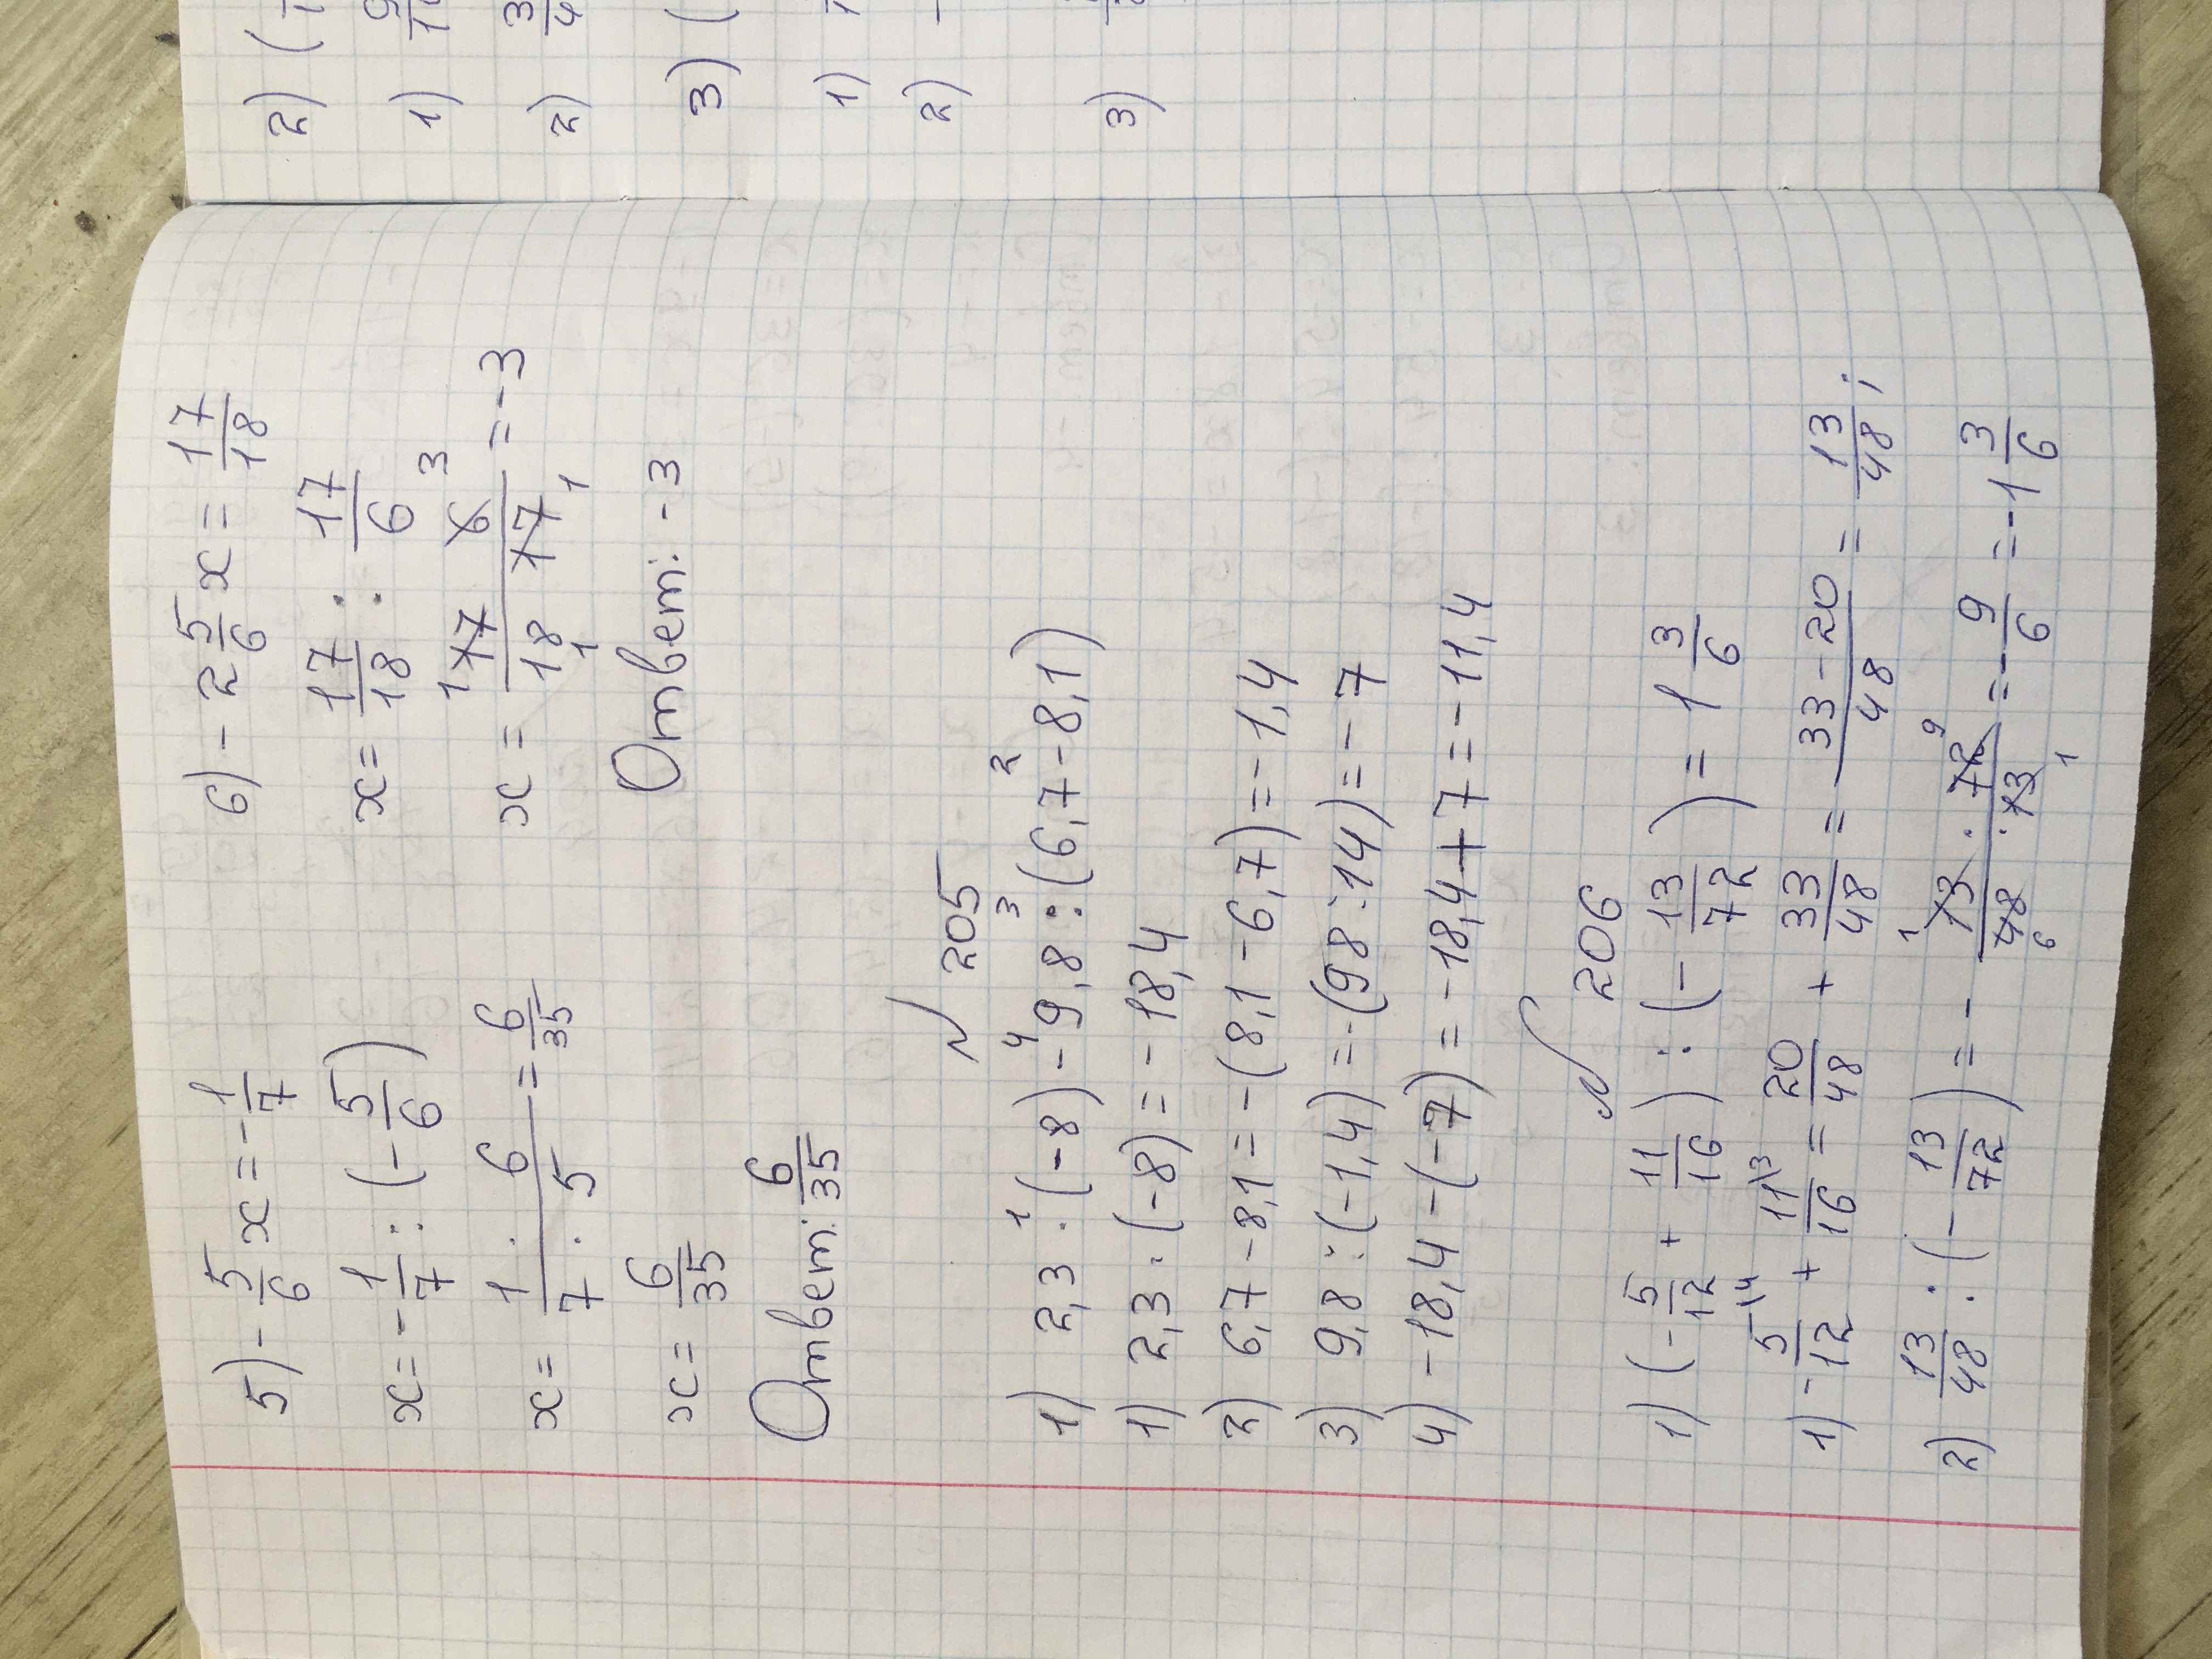 5) -5/6 x = -1/7
x = -1/7 : (-5/6)
x = 1·6/7·5 = 6/35
x = 6/35
Ответ: 6/35
6) -2 5/6 x = 17/18
x = 17/18 : 17/6
x = 17 6/18 17 = -3
Ответ: -3
№ 205
1) 2,3 · (-8) - 9,8 : (6,7 - 8,1)
1) 2,3 · (-8) = -18,4
2) 6,7 - 8,1 = -(8,1 - 6,7) = -1,4
3) 9,8 : (-1,4) = -(98 : 14) = -7
4) -18,4 - (-7) = -18,4 + 7 = -11,4
№ 206
1) (-5/12 + 11/16) : (-13/72) = 1 3/6
1) -5/12 + 11/16 = 20/48 + 33/48 = 33-20/48 = 13/48;
2) 13/48 : (-13/72) = -13·72/48·13 = -9/6 = -1 3/6
2) (
1)
2) 3/4
3) (
1)
2) -
3)